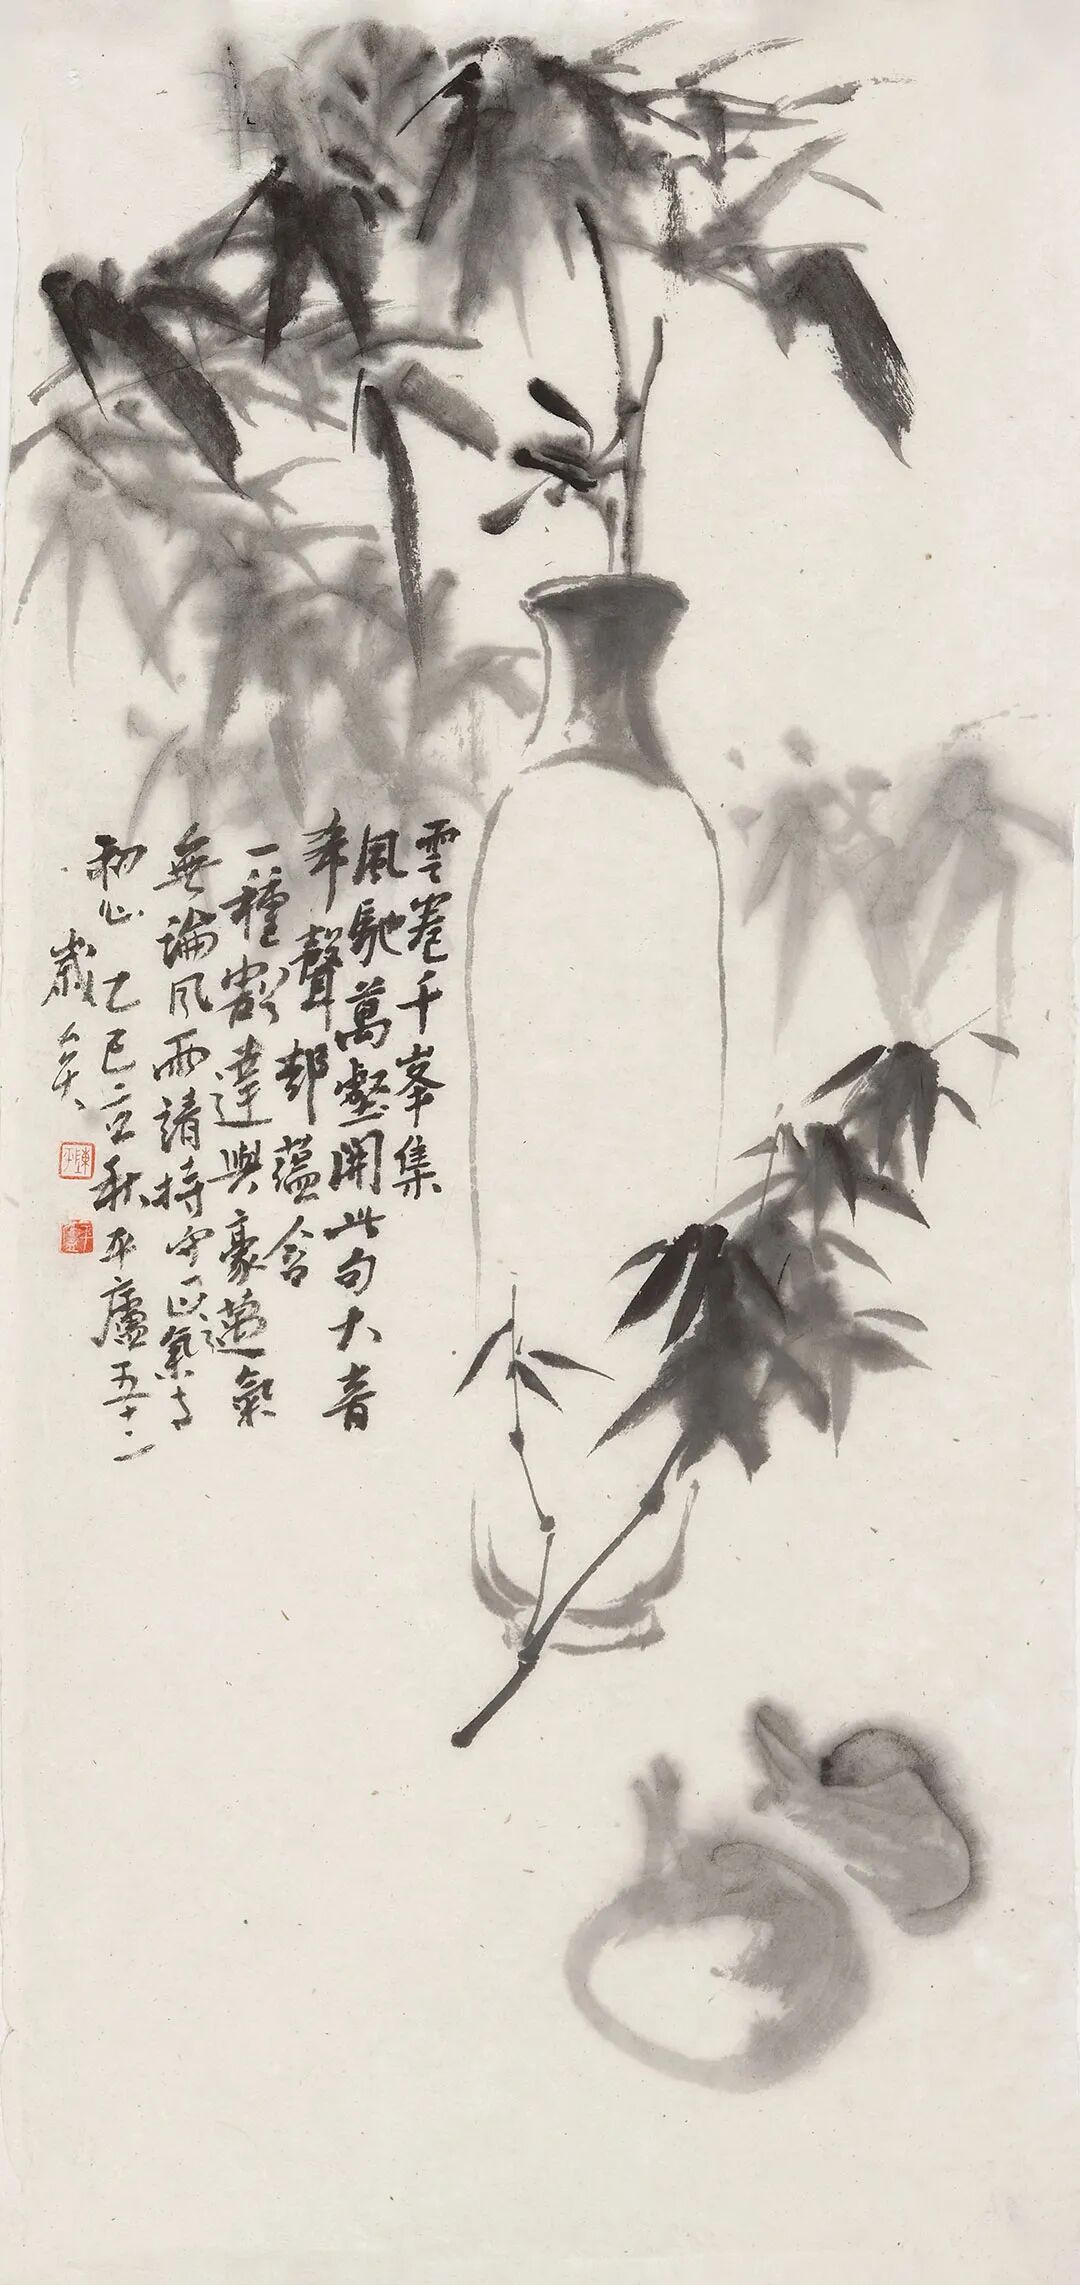 雲卷千峯集
風馳萬壑開此句大音
希聲却蘊含
一種豁達與豪邁氣
無論風雨請持守正氣与
初心乙巳立秋平廬五十二
歲矣
陳平
平廬